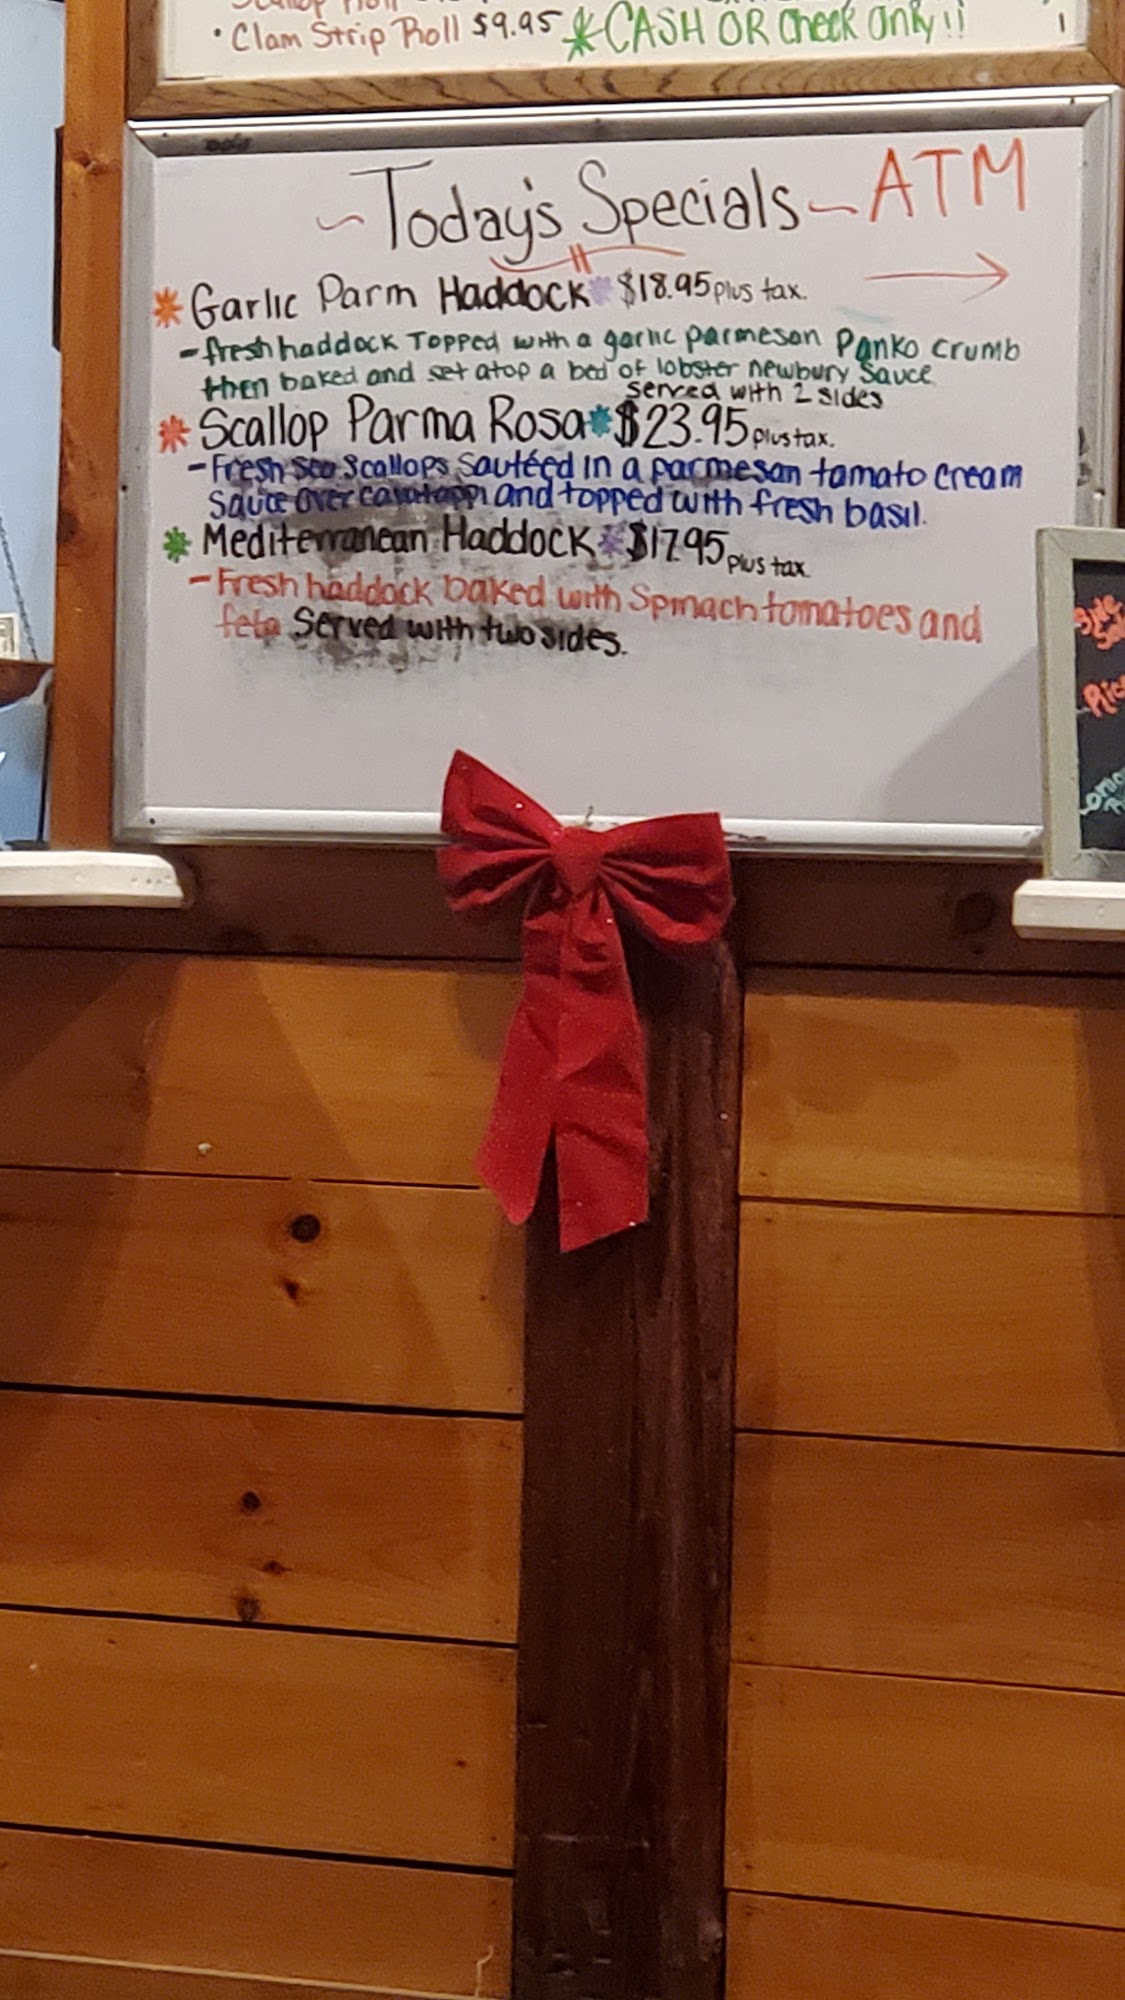 Scallop Roll
• Clam Strip Roll $9.95 *CASH OR Check Only!!
~Today's Specials~ ATM
*Garlic Parm Haddock*$18.95 plus tax.
-fresh haddock Topped with a garlic parmeson Panko crumb
then baked and set atop a bed of lobster newbury Sauce
served with 2 sides
*Scallop Parma Rosa*$23.95 plus tax.
-Fresh sea Scallops Sautéed in a parmesan tomato cream
Sauce over cavatappi and topped with fresh basil.
*Mediterranean Haddock*$17.95 plus tax
-Fresh haddock baked with Spinach tomatoes and
feta Served with two sides.
Side